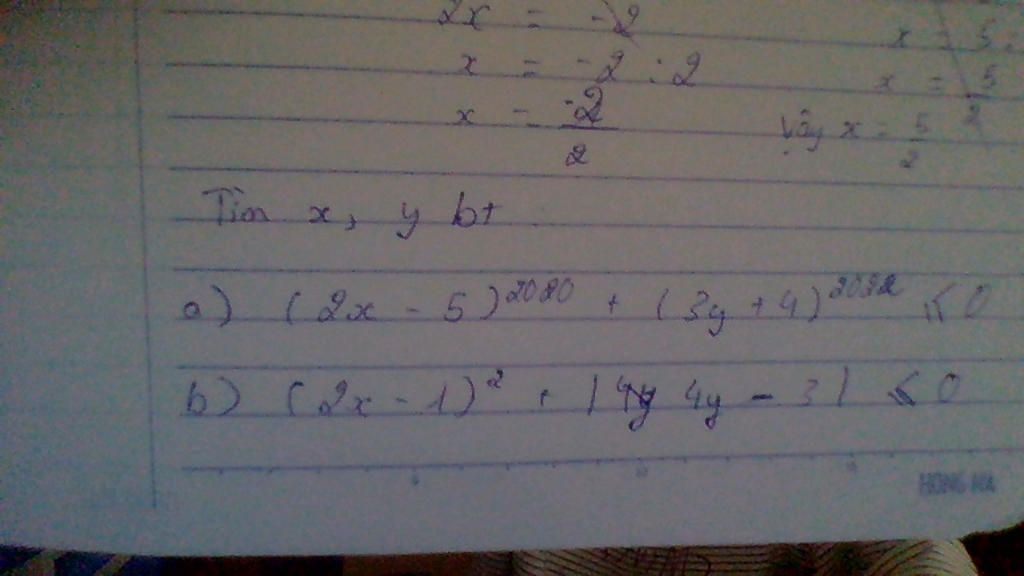 2x = -2
x = 5:
x = -2 : 2
x = 5/2
x = -2/2
Vậy x = 5/2
Tìm x, y bt
a) (2x - 5)^2020 + (3y + 4)^2022 ≤ 0
b) (2x - 1)^2 + |4y 4y - 3| ≤ 0
HONG HA